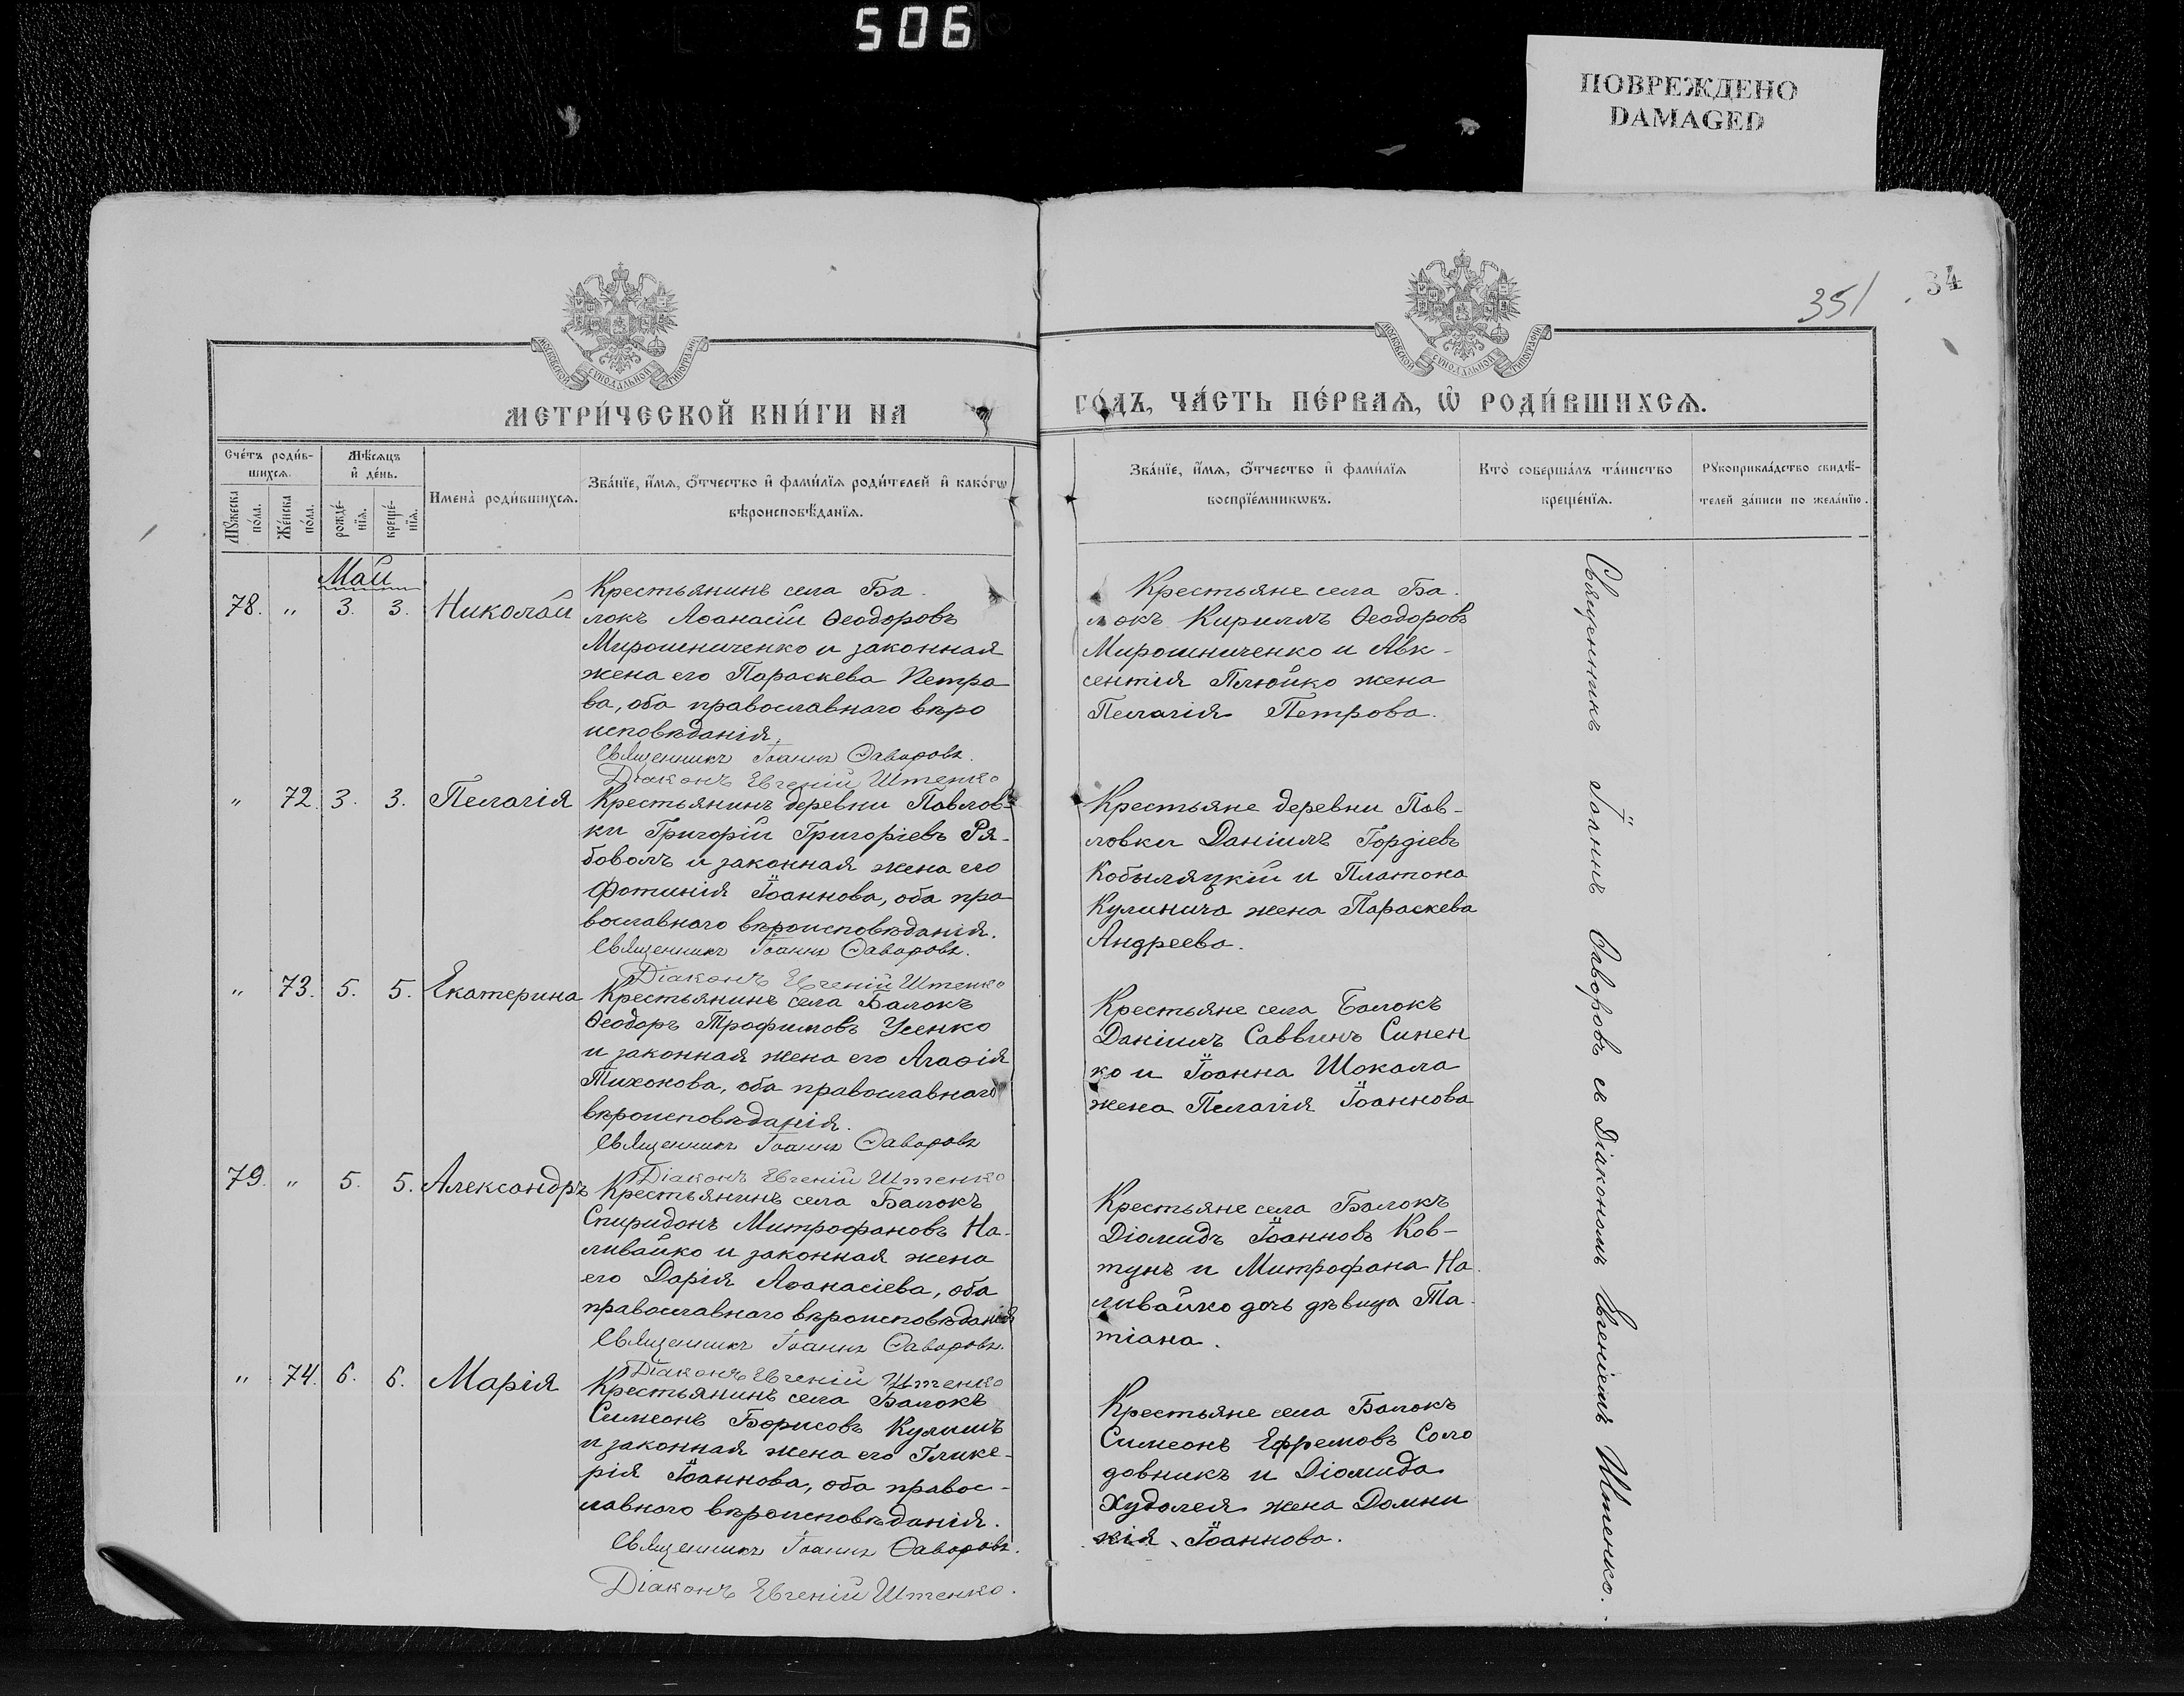 506
ПОВРЕЖДЕНО
DAMAGED
351
34
МОСКОВСКОЙ СѴНОДАЛЬНОЙ ТИПОГРАФІИ
МОСКОВСКОЙ СѴНОДАЛЬНОЙ ТИПОГРАФІИ
МЕТРИ́ЧЕСКОЙ КНИ́ГИ НА
ГО́ДЪ, ЧА́СТЬ ПЕ́РВАѦ, Ѡ҆ РОДИ́ВШИХСѦ.
Сче́тъ роди́в-
шихсѧ.
Мꙋ́жеска
по́ла.
Же́нска
по́ла.
Мѣ́сѧцъ
и҆ де́нь.
рожде́-
нїѧ.
креще́-
нїѧ.
Имена̀ роди́вшихсѧ.
Зва́нїе, и҆́мѧ, ѻ҆́тчество и҆ фами́лїѧ роди́телей и҆ како́гѡ
вѣроисповѣ́данїѧ.
Зва́нїе, и҆́мѧ, ѻ҆́тчество и҆ фами́лїѧ
воспрїе́мникѡвъ.
Кто̀ соверша́лъ та́инство
креще́нїѧ.
Рꙋкоприкла́дство свидѣ́-
телей за́писи по жела́нїю.
Май
78. " 3. 3. Николай
Крестьянинъ села Ба-
локъ Аѳанасій Ѳеодоровъ
Мирошниченко и законная
жена его Параскева Петро
ва, оба православнаго вѣро
исповѣданія.
Священникъ Іоаннъ Ѳаворовъ.
Діаконъ Евгеній Штенко
Крестьяне села Ба-
локъ Кириллъ Ѳеодоровъ
Мирошниченко и Авк-
сентія Плюйко жена
Пелагія Петрова.
" 72. 3. 3. Пелагія
Крестьянинъ деревни Павлов-
ки Григорій Григоріевъ Ря-
боволъ и законная жена его
Фотинія Іоаннова, оба пра-
вославнаго вѣроисповѣданія.
Священникъ Іоаннъ Ѳаворовъ.
Діаконъ Евгеній Штенко
Крестьяне деревни Пав-
ловки Даніилъ Гордіевъ
Кобыляцкій и Платона
Кулинича жена Параскева
Андреева.
" 73. 5. 5. Екатерина
Крестьянинъ села Балокъ
Ѳеодоръ Трофимовъ Усенко
и законная жена его Агаѳія
Тихонова, оба православнаго
вѣроисповѣданія.
Священникъ Іоаннъ Ѳаворовъ
Діаконъ Евгеній Штенко
Крестьяне села Балокъ
Даніилъ Саввинъ Синен
ко и Іоанна Шокала
жена Пелагія Іоаннова
79. " 5. 5. Александръ
Крестьянинъ села Балокъ
Спиридонъ Митрофановъ На-
ливайко и законная жена
его Дарія Аѳанасіева, оба
православнаго вѣроисповѣданія
Священникъ Іоаннъ Ѳаворовъ.
Діаконъ Евгеній Штенко
Крестьяне села Балокъ
Діомидъ Іоанновъ Ков-
тунъ и Митрофана На-
ливайко дочь дѣвица Та-
тіана.
" 74. 6. 6. Марія
Крестьянинъ села Балокъ
Симеонъ Борисовъ Кулишъ
и законная жена его Глике-
рія Іоаннова, оба правос-
лавнаго вѣроисповѣданія.
Священникъ Іоаннъ Ѳаворовъ.
Діаконъ Евгеній Штенко.
Крестьяне села Балокъ
Симеонъ Ефремовъ Соло
довникъ и Діомида
Худолея жена Домни
кія Іоаннова.
Священникъ Іоаннъ Ѳаворовъ съ Діакономъ Евгеніемъ Штенко.